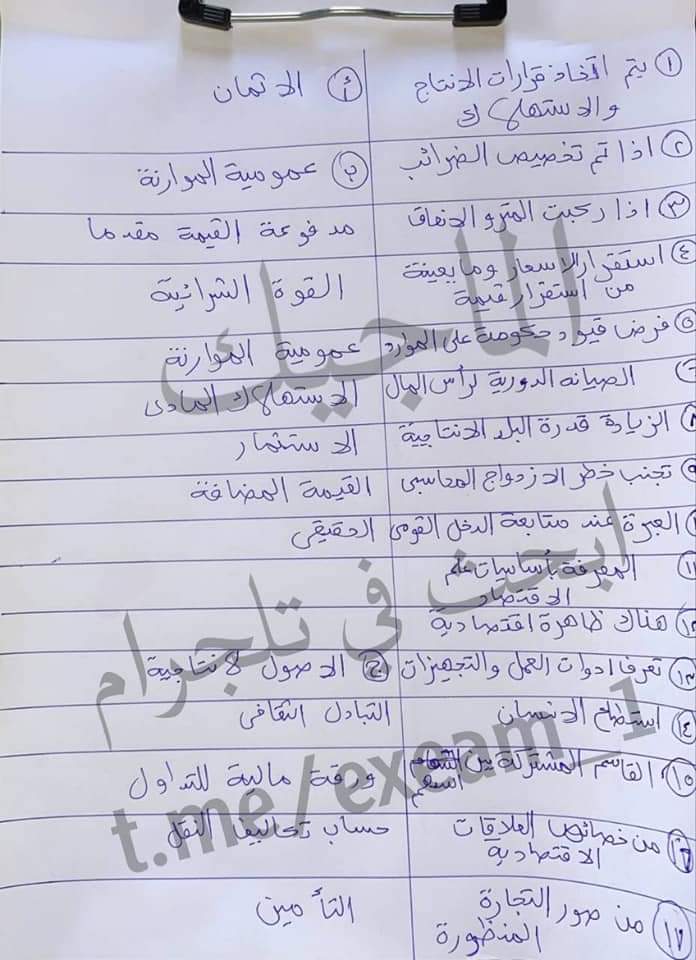 ١ يتم اتخاذ قرارات الانتاج
والاستهلاك
أ الاثمان
٢ اذا تم تخصيص الضرائب
ب عمومية الموازنة
٣ اذا ركبت المترو الانفاق
مدفوعة القيمة مقدما
٤ استقرار الاسعار وما يعينة
من استقرار قيمة
القوة الشرائية
٥ فرض قيود حكومة على الموارد
عمومية الموازنة
الصيانه الدورية لرأس المال
الاستهلاك المادى
٨ الزيادة قدرة البلد الانتاجية
الاستثمار
٩ تجنب خطر الازدواج المحاسبى
القيمة المضافة
العبرة عند متابعة الدخل القومى
الحقيقى
١١ المعرفة بأساسيات علم
الاقتصاد
١٢ هناك ظاهرة اقتصادية
١٣ تعرف ادوات العمل والتجهيزات
ج الاصول الانتاجية
١٤ استطاع الانسان
التبادل الثقافى
١٥ القاسم المشترك بين
اسهم
ورقة مالية للتداول
١٦ من خصائص العلاقات
الاقتصادية
حساب تكاليف النقل
١٧ من صور التجارة
المنظورة
التأمين
الماجيك
ابحث في تلجرام
t.me/exeam_1